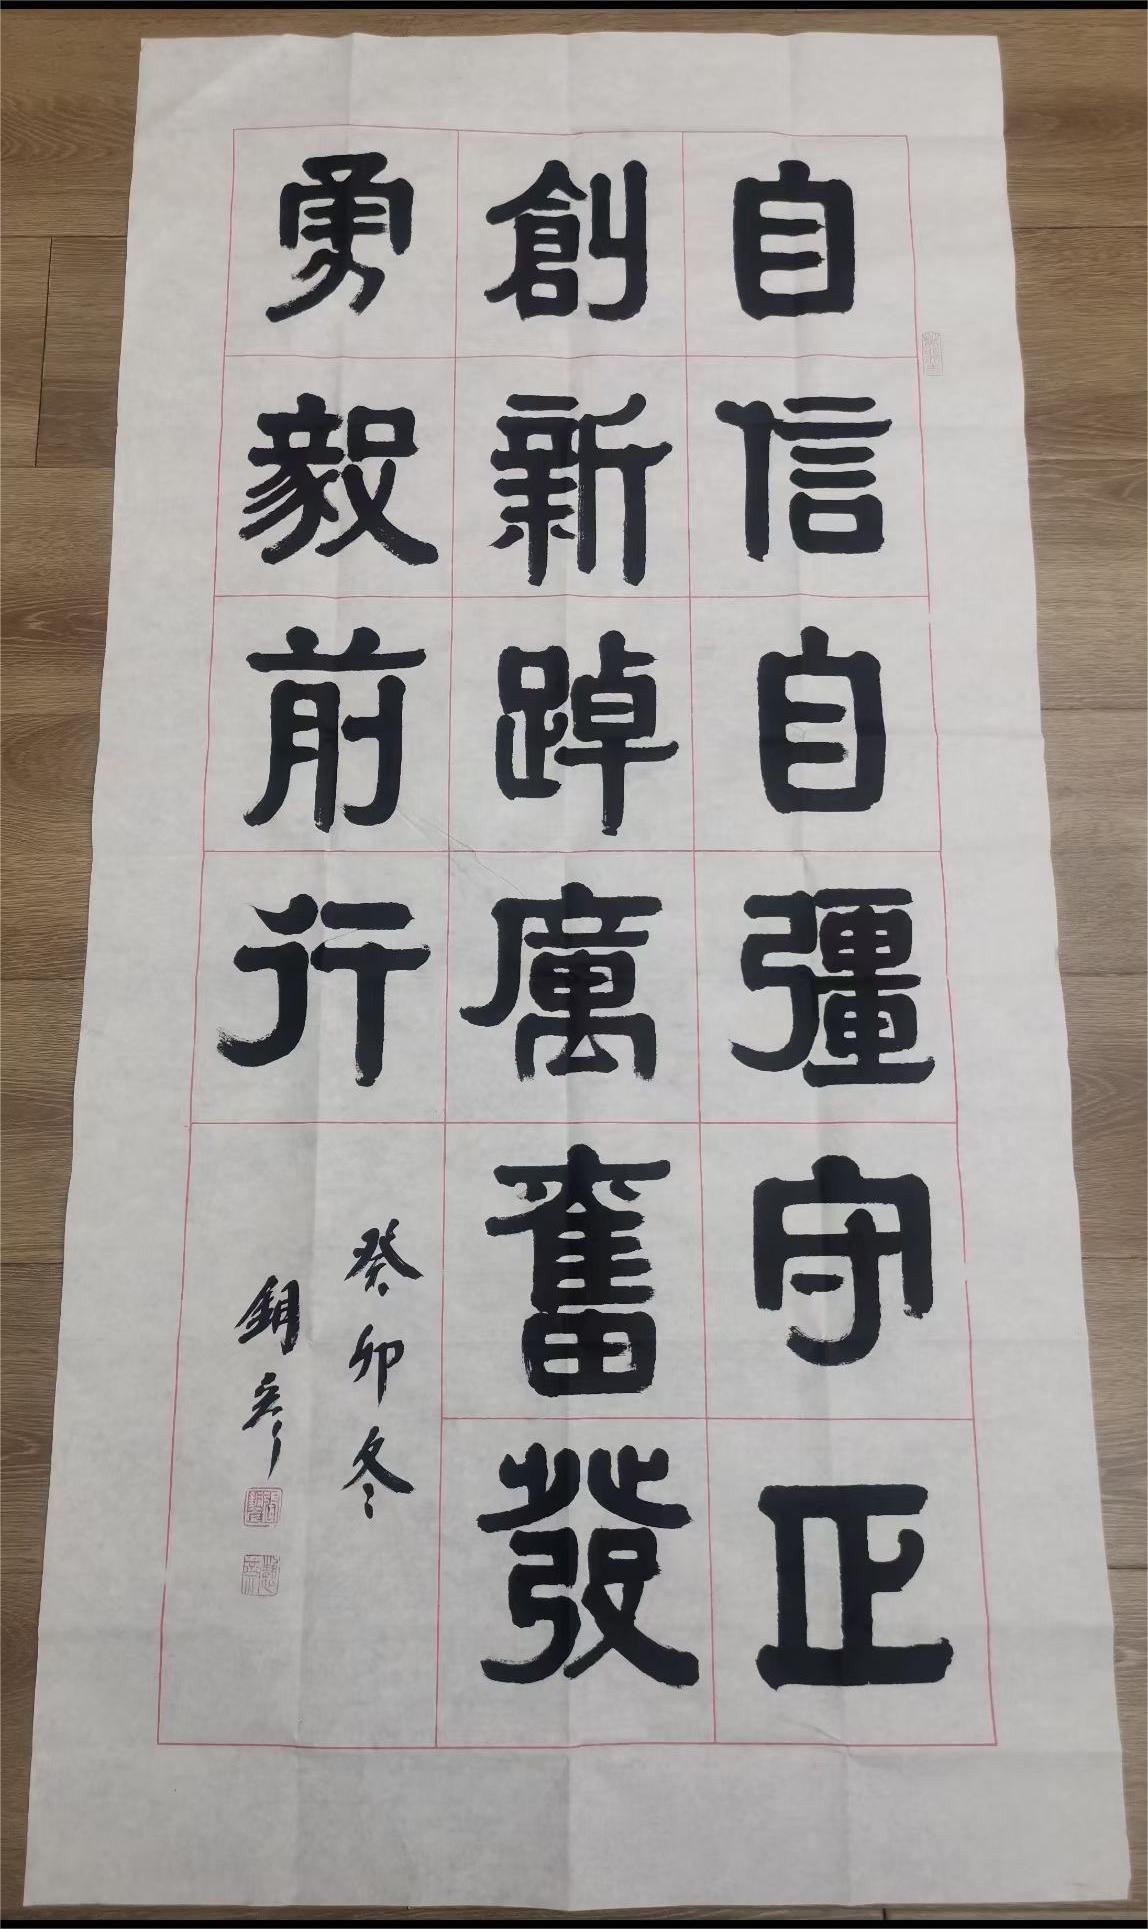 自信自彊守正
創新踔厲奮發
勇毅前行
癸卯冬
鈅彥